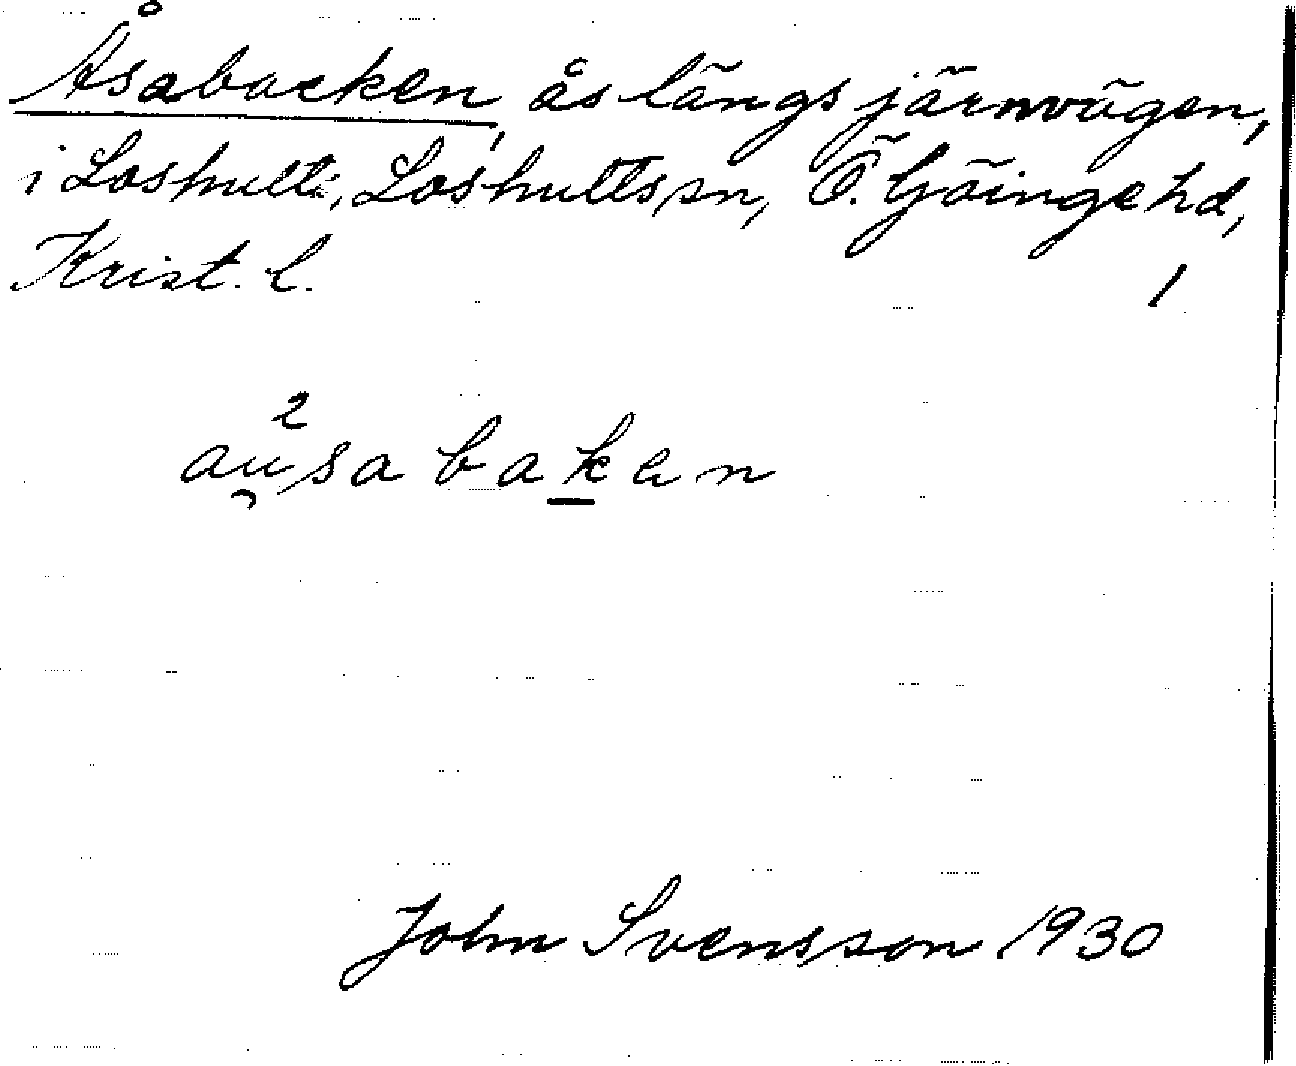 Åsabacken, ås längs järnvägen,
i Loshult, Loshults sn, Ö. Göinge hd,
Krist. l. 1
au̯²sabak̲en
John Svensson 1930